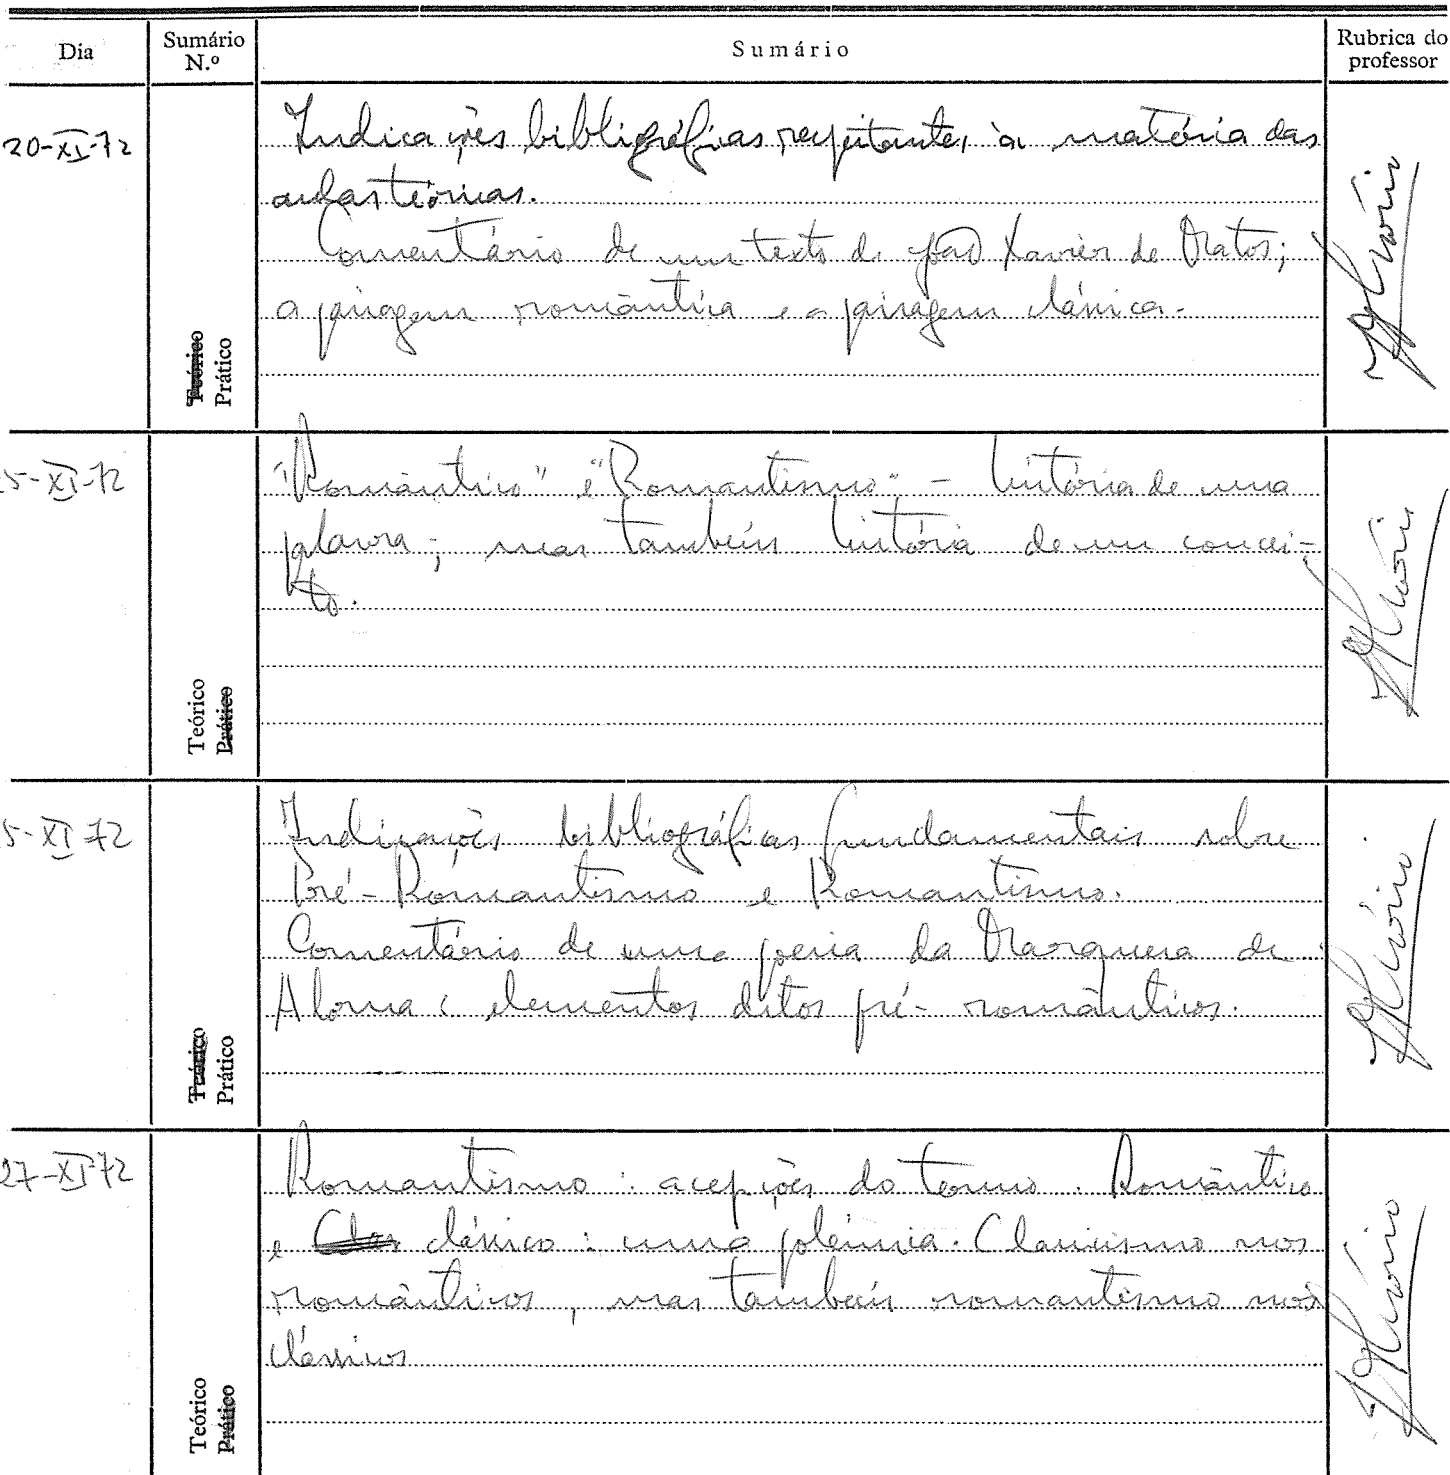 Dia
Sumário
N.º
Sumário
Rubrica do
professor
20-XI-72
Indicações bibligráficas respeitantes à matéria das
aulas teóricas.
Comentário de um texto de João Xavier de Matos;
a paisagem romântica e a paisagem clássica.
Teórico
Prático
5-XI-72
"Romântico" e "Romantismo" - história de uma
palavra; mas também história de um concei-
to.
Teórico
Prático
5-XI-72
Indicações bibliográficas fundamentais sobre
Pré-Romantismo e Romantismo.
Comentário de uma poesia da Marquesa de
Alorna: elementos ditos pré-românticos.
Teórico
Prático
27-XI-72
Romantismo: acepções do termo. Romântico
e clássico: uma polémica. Classicismo nos
românticos, mas também romantismo nos
clássicos
Teórico
Prático